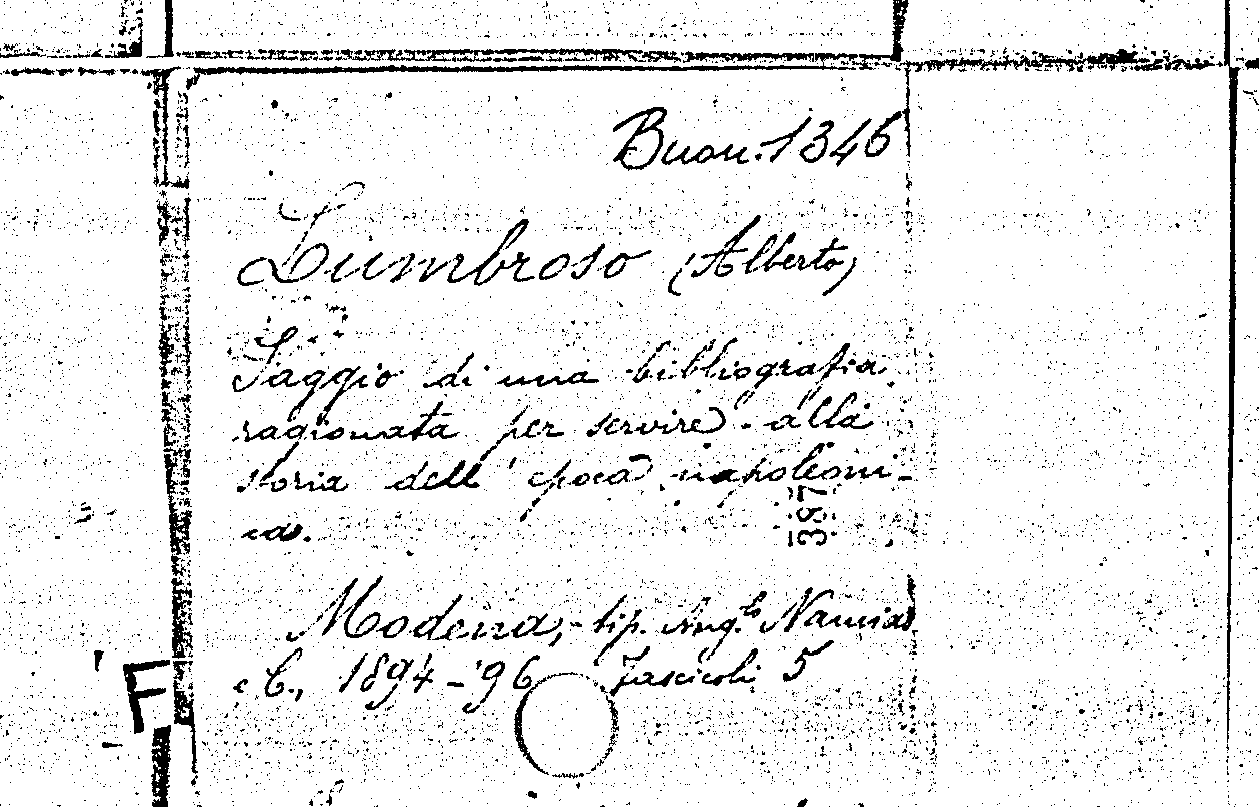 Buon. 1346
Lumbroso (Alberto)
Saggio di una bibliografia
ragionata per servire alla
storia dell' epoca napoleoni-
ca.
387
Modena, tip. Ang.lo Namias
e C., 1894-'96 Fascicoli 5
F